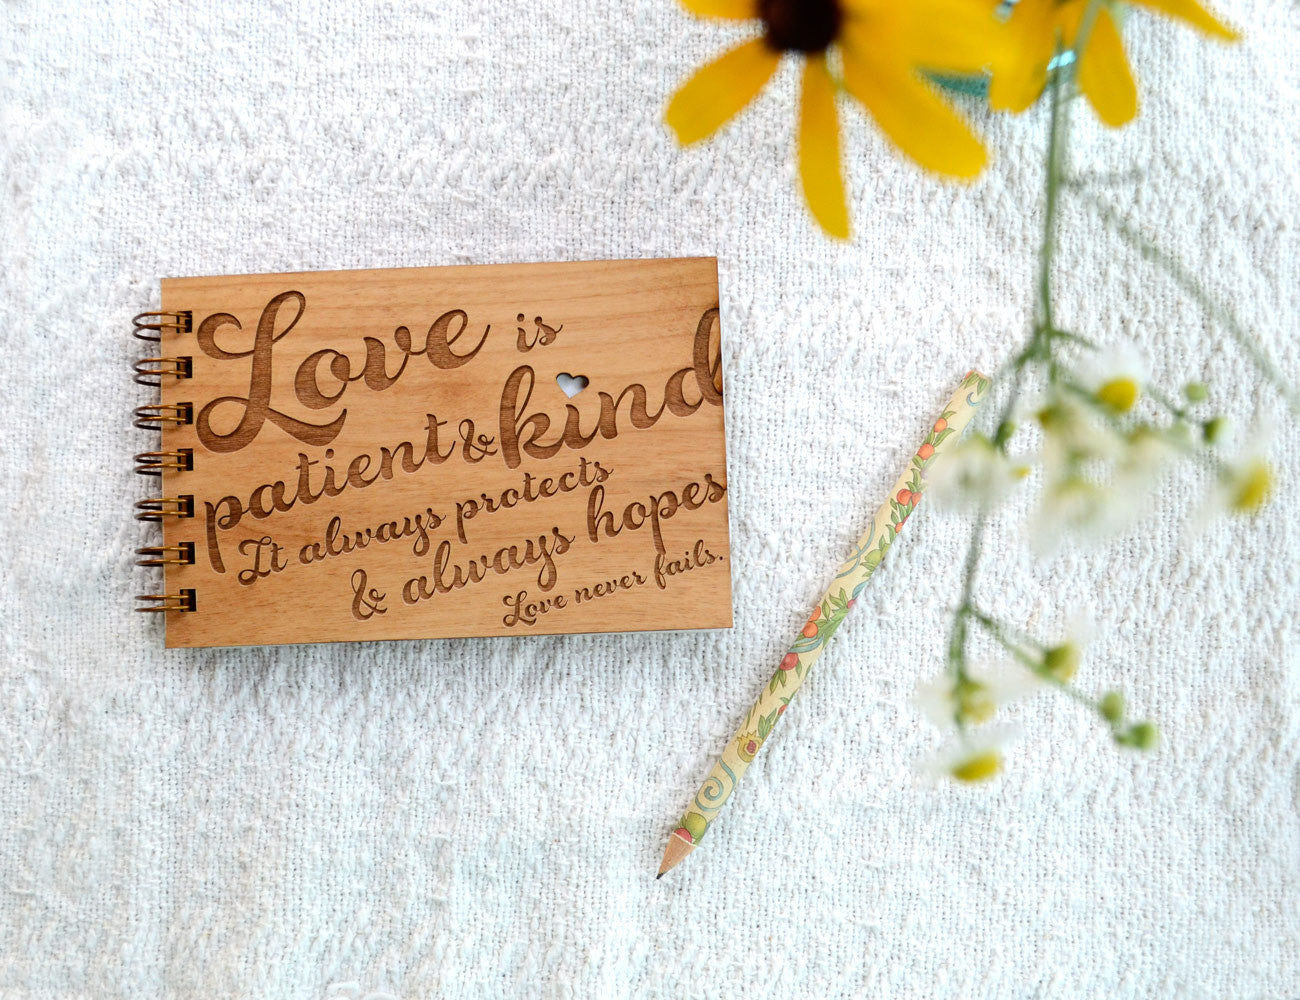 Love is
patient & kind
It always protects
& always hopes
Love never fails.